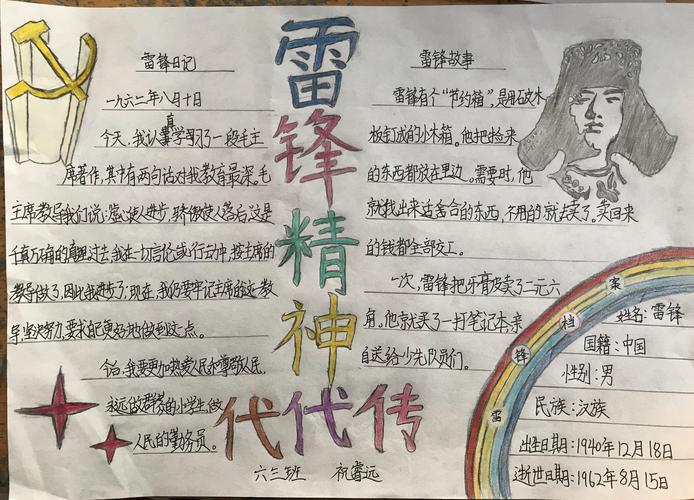 雷锋日记
一九六二年八月十日
今天,我认真学习了一段毛主
席著作,其中有两句话对我教育最深。毛
主席教导我们说:虚心使人进步,骄傲使人落后,这是
千真万确的真理。过去,我在一切言论或行动中,按主席的
教导做了,因此我进步了。现在,我仍要牢记主席的这一教
导,坚决努力,要求自己更好地做到这一点。
今后,我要更加热爱人民和尊敬人民,
永远做群众的小学生,做
人民的勤务员。
雷锋精神代代传
六三班 祝睿远
雷锋故事
雷锋有个“节约箱”,是用破木
板钉成的小木箱。他把捡来
的东西都放在里边。需要时,他
就找出来适合的东西,不用的就去卖了。卖回来
的钱都全部交工。
一次,雷锋把牙膏皮卖了二元六
角。他就买了一打笔记本亲
自送给少先队员们。
雷锋档案
姓名:雷锋
国籍:中国
性别:男
民族:汉族
出生日期:1940年12月18日
逝世日期:1962年8月15日